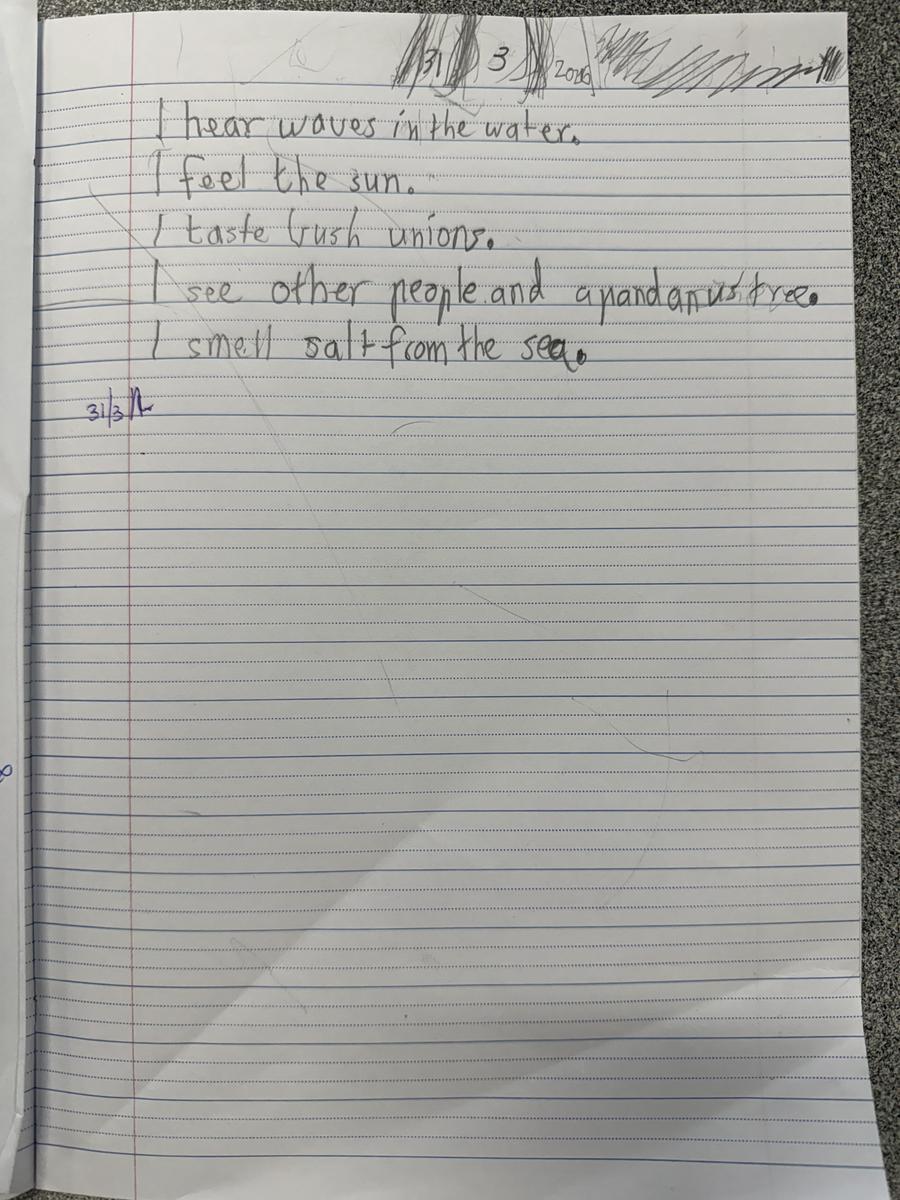 31 3 2026
I hear waves in the water.
I feel the sun.
I taste bush unions.
I see other people and a pandanus tree.
I smell salt from the sea.
31/3